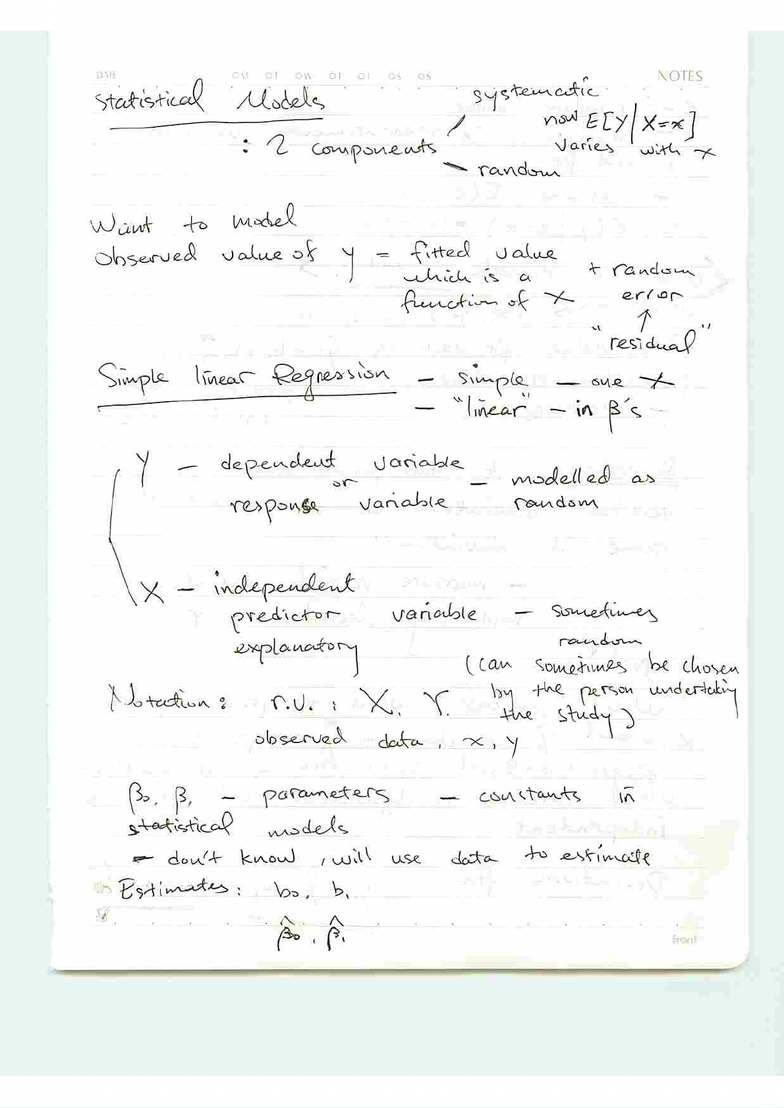 DATE
NOTES
Statistical Models
: 2 components
systematic
now E[Y|X=x]
varies with x
random
Want to model
Observed value of y = fitted value
which is a
function of X
+ random
error
↑
"residual"
Simple linear Regression - simple - one X
- "linear" - in β's
Y - dependent variable
or
response variable
- modelled as
random
X - independent
predictor variable - sometimes
explanatory random
(can sometimes be chosen
by the person undertaking
the study)
Notation: r.v. : X, Y.
observed data, x, y
β0, β1 - parameters - constants in
statistical models
- don't know, will use data to estimate
Estimates: b0, b1
β̂0, β̂1
front